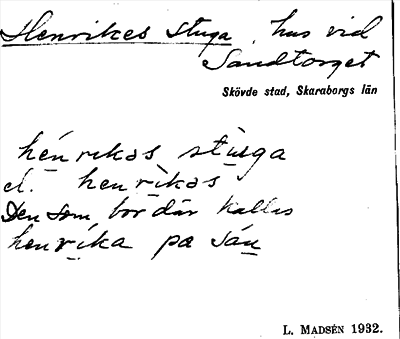 Henrikes stuga, hus vid
Sandtorget
Skövde stad, Skaraborgs län
hénrikəs stuga
el. henrikəs
Den som bor där kallas
henrika pa sán
L. MADSÉN 1932.